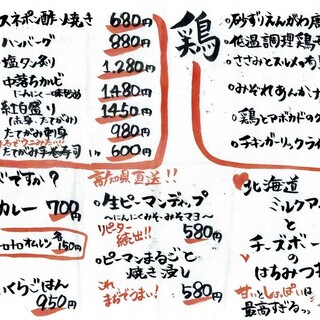 スネポン酢焼き 680円
ハンバーグ 880円
塩タン刺 1,280円
中落ちカルビ
にんにく一味炒め 1480円
紅白盛り
(赤身、たてがみ) 1450円
たてがみ刺身 980円
たてがみ手巻寿司 1ケ 600円
鶏
砂ずりえんがわ唐
低温調理鶏
ささみとスルメ
みぞれあんかけ
鶏とアボカド
チキンガーリックライ
ですか?
カレー 700円
トロトロオムレツ 各150円
いくらごはん 950円
高知県直送!!
・生ピーマンディップ
~にんにくみそ・みそマヨ~
リピーター続出!! 580円
・ピーマンまるごと
焼き浸し
これまたうまい! 580円
北海道
ミルクア
と
チーズボー
のはちみつ
甘いとしょっぱいは
最高すぎるっ